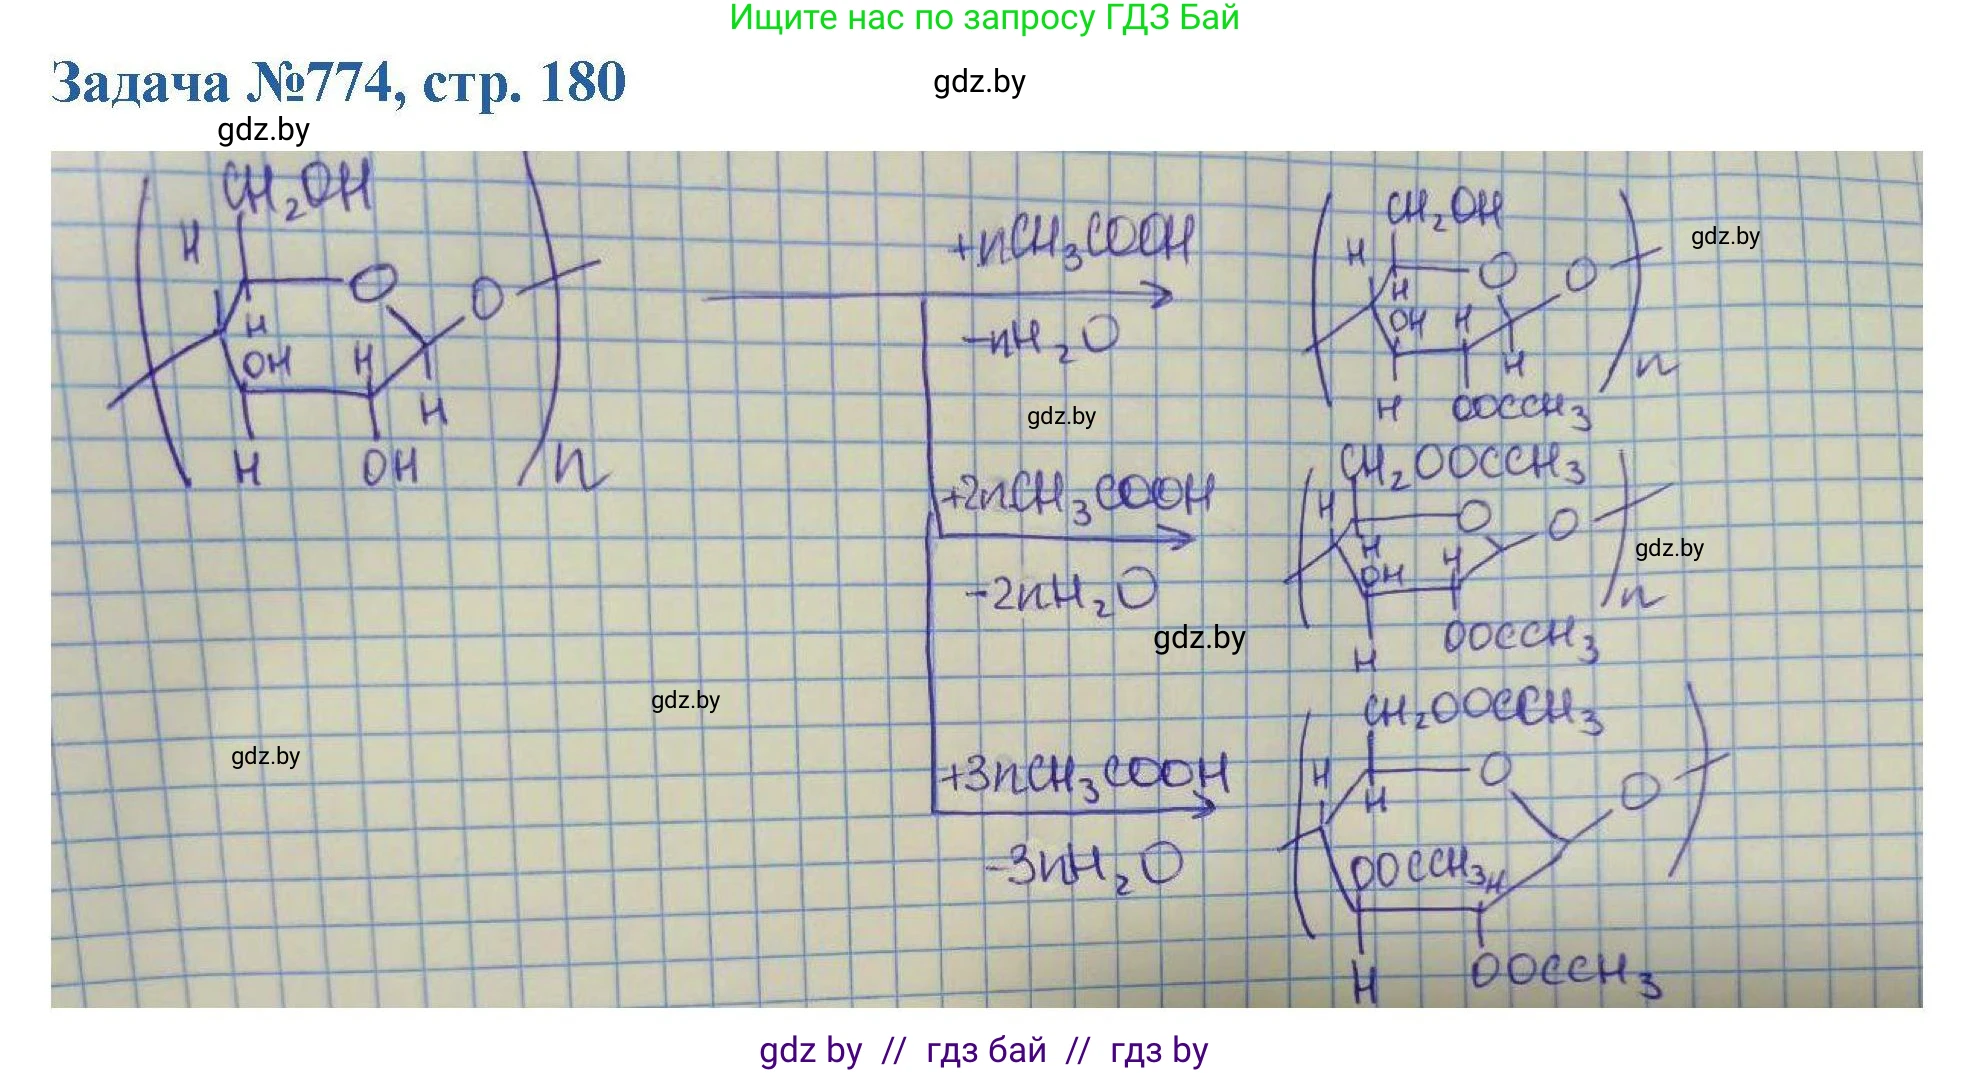 Ищите нас по запросу ГДЗ Бай
Задача №774, стр. 180
gdz.by
gdz.by
CH₂OH
H
O
O
H
OH
H
H
H
OH
n
+nCH₃COOH
-nH₂O
CH₂OH
gdz.by
H
O
O
H
OH
H
H
n
H
OOCCH₃
gdz.by
+2nCH₃COOH
-2nH₂O
CH₂OOCCH₃
H
O
O
gdz.by
H
OH
H
n
OOCCH₃
H
gdz.by
gdz.by
gdz.by
+3nCH₃COOH
-3nH₂O
CH₂OOCCH₃
H
O
O
H
OOCCH₃
H
H
OOCCH₃
gdz by // гдз бай // гдз by